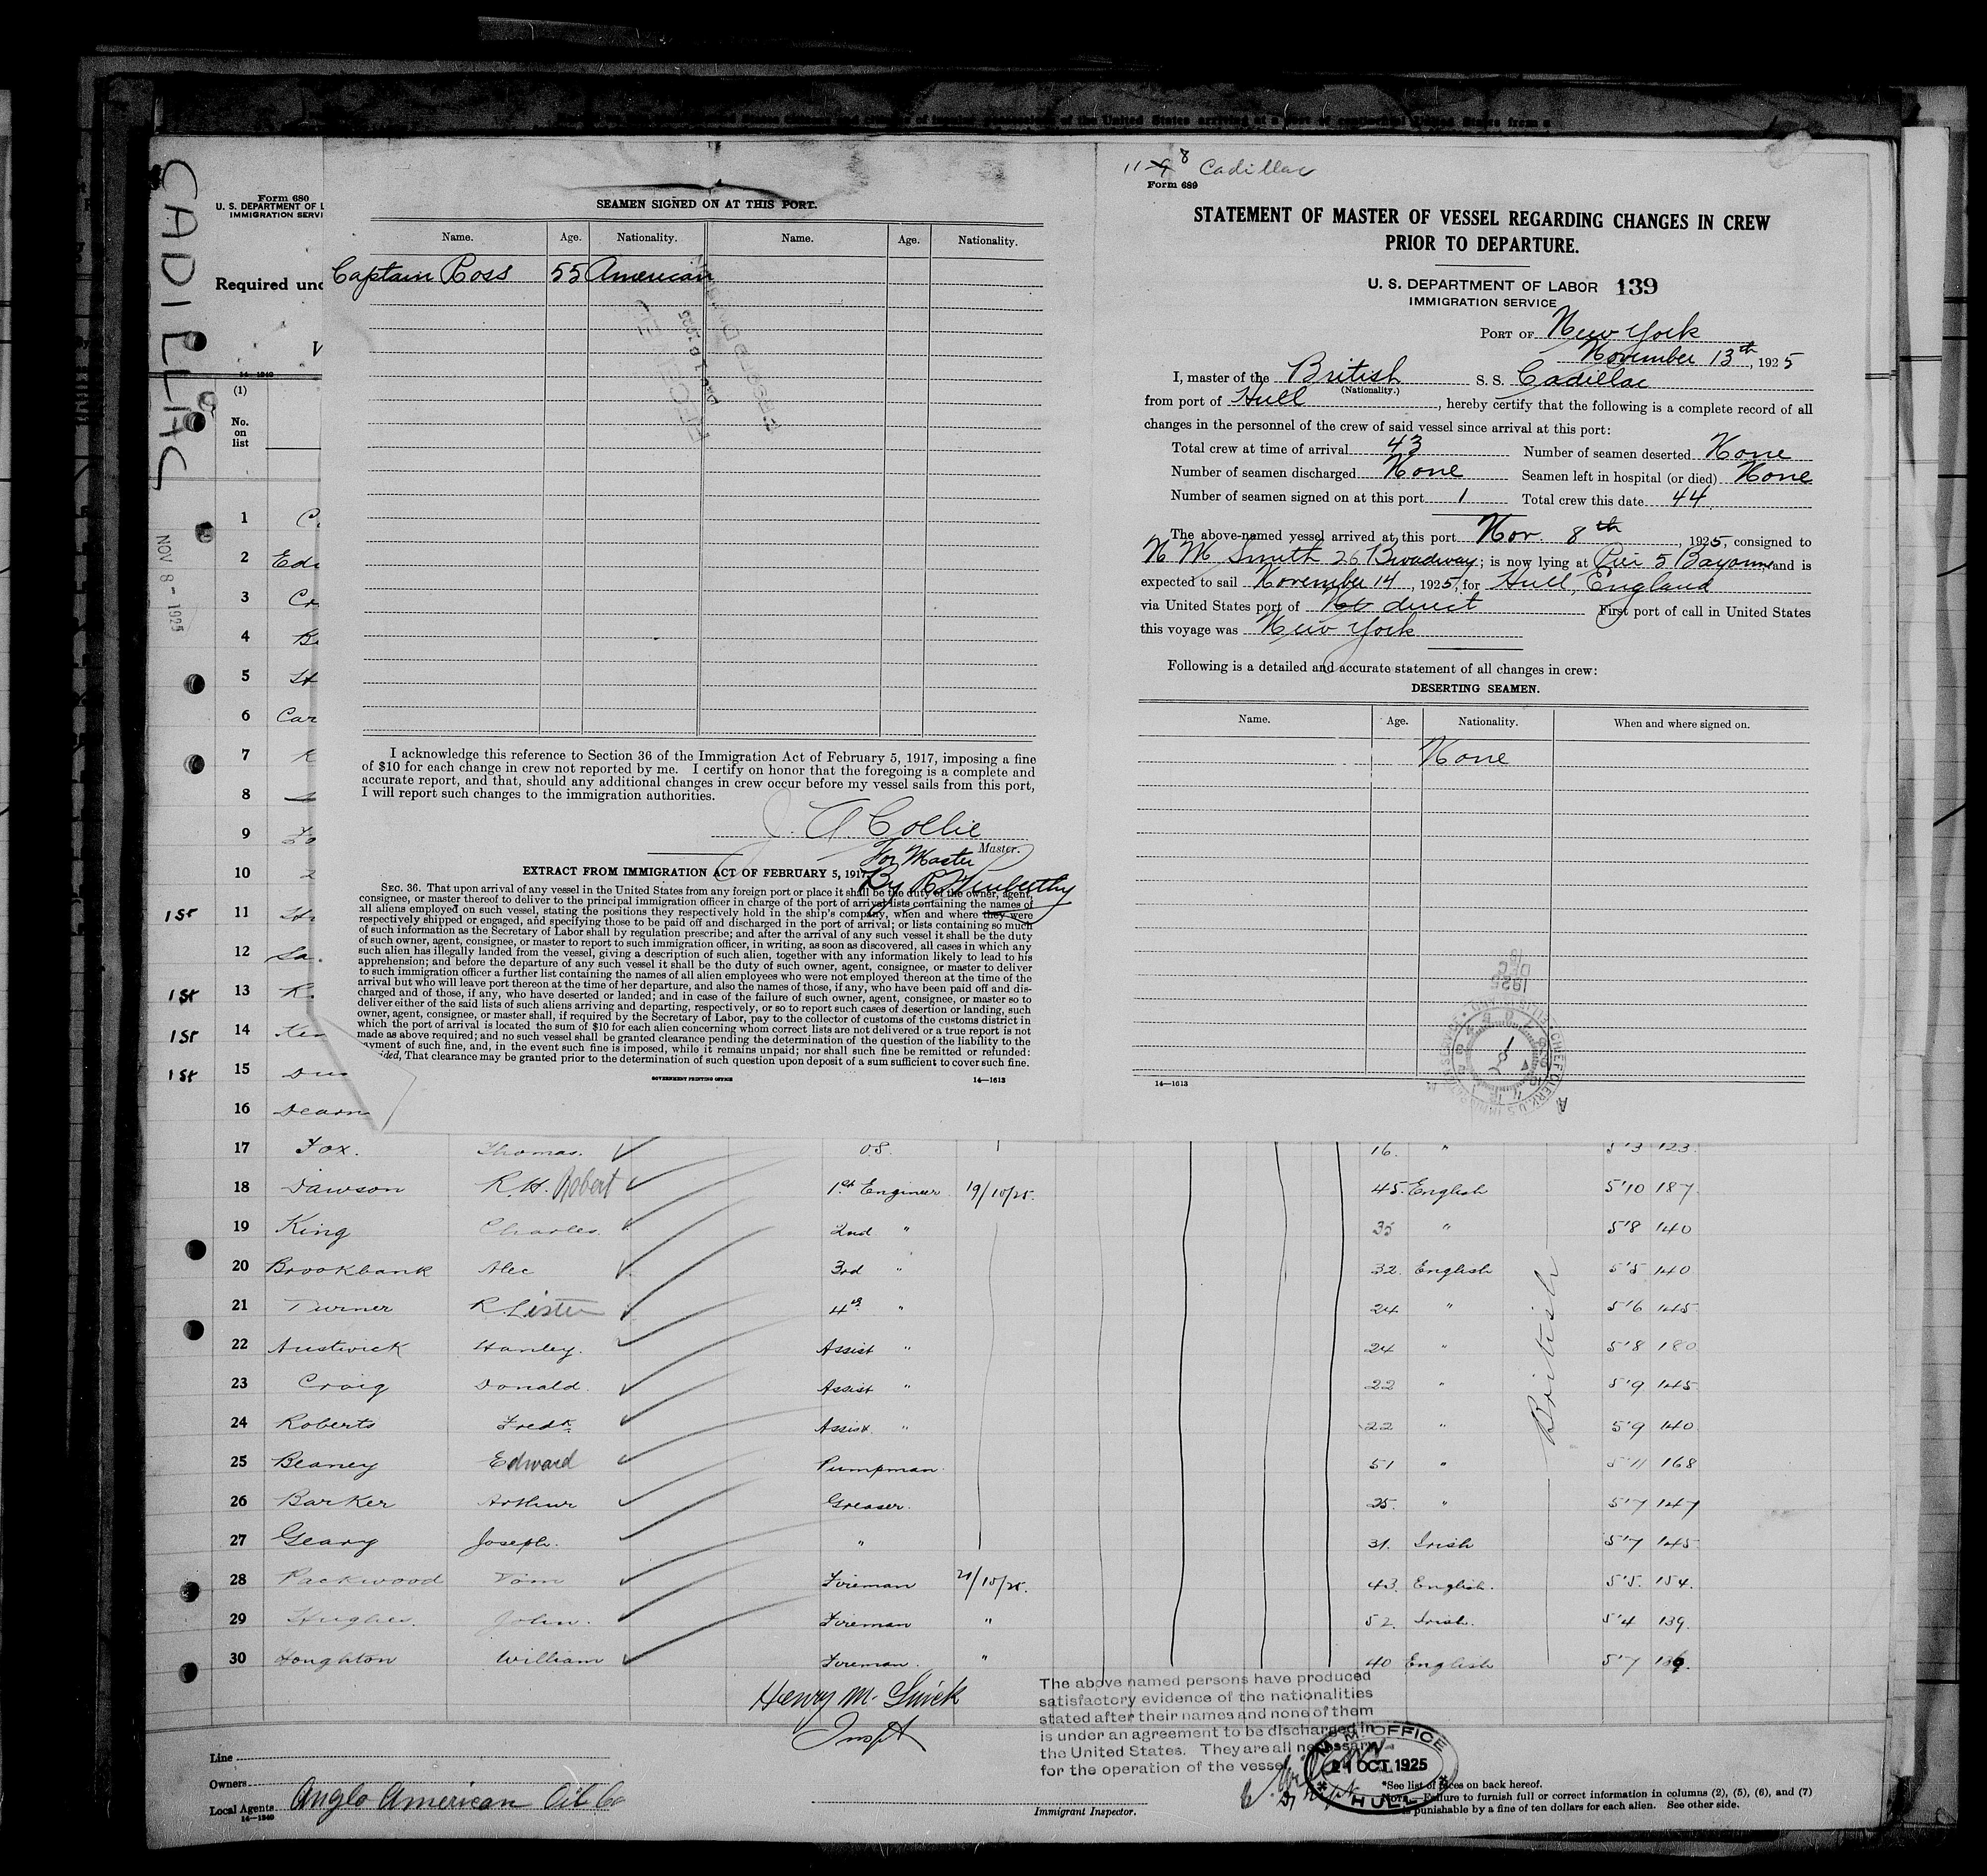 CADILLAC
NOV 8 - 1925
Form 680
U. S. DEPARTMENT OF L
IMMIGRATION SERVI
Required und
14—1240
(1)
No.
on
list
SEAMEN SIGNED ON AT THIS PORT.
Name. Age. Nationality. Name. Age. Nationality.
Captain Ross 55 American
RECEIVED
I acknowledge this reference to Section 36 of the Immigration Act of February 5, 1917, imposing a fine
of $10 for each change in crew not reported by me. I certify on honor that the foregoing is a complete and
accurate report, and that, should any additional changes in crew occur before my vessel sails from this port,
I will report such changes to the immigration authorities.
Collie
Master.
For Master
EXTRACT FROM IMMIGRATION ACT OF FEBRUARY 5, 1917
SEC. 36. That upon arrival of any vessel in the United States from any foreign port or place it shall be the duty of the owner, agent,
consignee, or master thereof to deliver to the principal immigration officer in charge of the port of arrival lists containing the names of
all aliens employed on such vessel, stating the positions they respectively hold in the ship's company, when and where they were
respectively shipped or engaged, and specifying those to be paid off and discharged in the port of arrival; or lists containing so much
of such information as the Secretary of Labor shall by regulation prescribe; and after the arrival of any such vessel it shall be the duty
of such owner, agent, consignee, or master to report to such immigration officer, in writing, as soon as discovered, all cases in which any
such alien has illegally landed from the vessel, giving a description of such alien, together with any information likely to lead to his
apprehension; and before the departure of any such vessel it shall be the duty of such owner, agent, consignee, or master to deliver
to such immigration officer a further list containing the names of all alien employees who were not employed thereon at the time of the
arrival but who will leave port thereon at the time of her departure, and also the names of those, if any, who have been paid off and dis-
charged and of those, if any, who have deserted or landed; and in case of the failure of such owner, agent, consignee, or master so to
deliver either of the said lists of such aliens arriving and departing, respectively, or so to report such cases of desertion or landing, such
owner, agent, consignee, or master shall, if required by the Secretary of Labor, pay to the collector of customs of the customs district in
which the port of arrival is located the sum of $10 for each alien concerning whom correct lists are not delivered or a true report is not
made as above required; and no such vessel shall be granted clearance pending the determination of the question of the liability to the
ayment of such fine, and, in the event such fine is imposed, while it remains unpaid; nor shall such fine be remitted or refunded:
ided, That clearance may be granted prior to the determination of such question upon deposit of a sum sufficient to cover such fine.
GOVERNMENT PRINTING OFFICE 14—1613
11-9 8 Cadillac
Form 689
STATEMENT OF MASTER OF VESSEL REGARDING CHANGES IN CREW
PRIOR TO DEPARTURE.
U. S. DEPARTMENT OF LABOR 139
IMMIGRATION SERVICE
PORT OF New York
November 13th, 1925
I, master of the British S. S. Cadillac
(Nationality.)
from port of Hull, hereby certify that the following is a complete record of all
changes in the personnel of the crew of said vessel since arrival at this port:
Total crew at time of arrival 43 Number of seamen deserted None
Number of seamen discharged None Seamen left in hospital (or died) None
Number of seamen signed on at this port 1 Total crew this date 44
The above-named vessel arrived at this port Nov. 8th, 1925, consigned to
N M Smith 26 Broadway; is now lying at Pier 5 Bayonne and is
expected to sail November 14, 1925, for Hull, England
via United States port of direct First port of call in United States
this voyage was New York
Following is a detailed and accurate statement of all changes in crew:
DESERTING SEAMEN.
Name. Age. Nationality. When and where signed on.
None
14—1613
1
2 Edw
3
4
5
6 Car
7
8
9
10
1st 11
12
1st 13
1st 14
1st 15
16 Dearn
17 Fox. Thomas. O.S. 16. " 5'3 123.
18 Dawson R.H. Robert 1st Engineer 19/10/25. 45. English 5'10 187.
19 King Charles. 2nd " 35 " 5'8 140
20 Brookbank Alec 3rd " 32. English 5'5 140
21 Turner R Lister 4th " 24 " 5'6 145
22 Austwick Stanley. Assist " 24 " 5'8 180
23 Craig Donald. Assist " 22 " 5'9 145
24 Roberts Fredk Assist " 22 " 5'9 140
25 Beaney Edward Pumpman. 51 " 5'11 168
26 Barker Arthur Greaser. 25. " 5'7 147
27 Geary Joseph. " 31. Irish 5'7 145
28 Packwood Tom Fireman 21/10/25. 43. English. 5'5. 154.
29 Hughes. John. Fireman " 52. Irish. 5'4 139.
30 Houghton William Fireman. " 40 English 5'7 139.
British
Henry M.
Inspt
The above named persons have produced
satisfactory evidence of the nationalities
stated after their names and none of them
is under an agreement to be discharged in
the United States. They are all necessary
for the operation of the vessel
M.M. OFFICE
21 OCT 1925
HULL
Line
Owners
Local Agents Anglo American Oil Co
14—1240
Immigrant Inspector.
*See list of races on back hereof.
NOTE.—Failure to furnish full or correct information in columns (2), (5), (6), and (7)
is punishable by a fine of ten dollars for each alien. See other side.